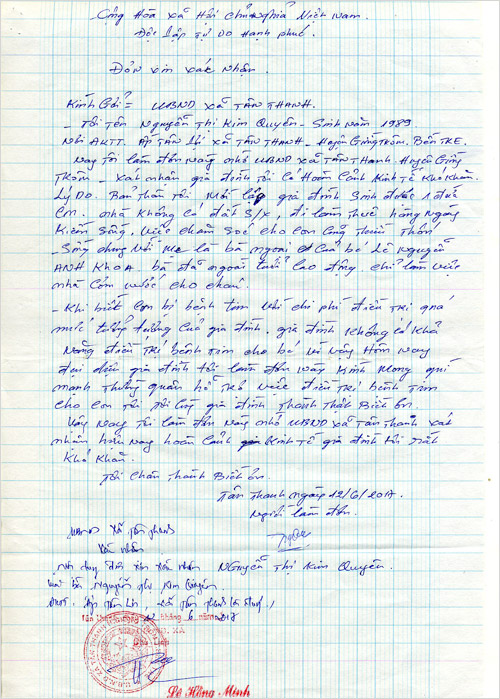 Cộng Hòa xã Hội chủ nghĩa Việt Nam
Độc lập Tự Do Hạnh phúc.
Đơn xin xác Nhận.
Kính Gởi = UBND xã TÂN THANH.
- Tôi Tên Nguyễn Thị Kim Quyên - Sinh Năm 1989
Nơi ĐKTT. ẤP TÂN xã TÂN THANH - Huyện Giồng Trôm, BẾN TRE.
Nay Tôi làm đơn này nhờ UBND xã TÂN Thanh Huyện Giồng
Trôm - xác nhận gia đình Tôi có Hoàn Cảnh Kinh Tế Khó Khăn.
Lý Do. Bản Thân Tôi Mới lập gia đình Sinh được 1 đứa
Con. nhà Không có đất S/x, đi làm Thuê hằng Ngày
Kiếm Sống, việc chăm Soc cho con Cũng Thiếu Thốn
- Sống chung Với Mẹ là bà ngoại Của bé Lê Nguyễn
ANH KHOA bà đã ngoài Tuổi lao động chỉ làm việc
nhà Cơm nước cho cháu.
- Khi biết Con bị bệnh tim Nhi chi phí điều Trị quá
mức tưởng tượng Của gia đình, gia đình Không có Khả
Năng điều Trị bệnh Tim cho bé vì vậy Hôm nay
đại diện gia đình tôi làm đơn này Kính Mong quí
mạnh Thường quân hỗ Trợ việc điều Trị bệnh Tim
cho con Tôi, Tôi Cùng gia đình Thành Thật Biết ơn
Vậy Nay Tôi làm đơn này nhờ UBND xã Tân Thanh xác
nhận hiện nay hoàn Cảnh Kinh Tế gia đình tôi rất
Khó Khăn.
Tôi Chân Thành Biết ơn.
Tân Thanh ngày 12/6/2017.
Người làm đơn.
UBND xã Tân Thanh
Xác nhận
Nội dung đơn xin xác nhận Nguyễn Thị Kim Quyên.
của bà Nguyễn Thị Kim Quyên
xã Tân Thanh
12 tháng 6 năm 2017
Lê Hồng Minh